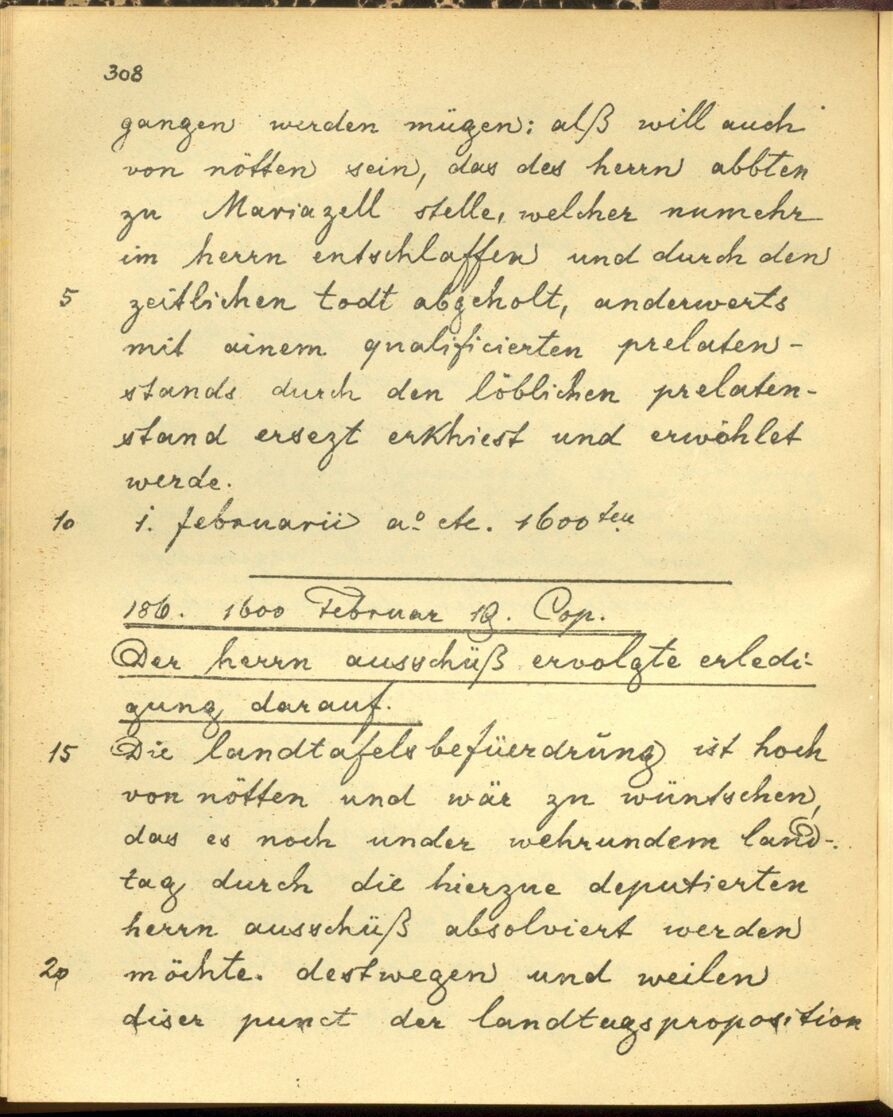 308
gangen werden mügen: alß will auch
von nötten sein, das des herrn abbten
zu Mariazell stelle, welcher numehr
im herrn entschlaffen und durch den
5 zeitlichen todt abgeholt, anderwerts
mit ainem qualificierten prelaten-
stands durch den löblichen prelaten-
stand ersezt erkhiest und erwöhlet
werde.
10 1. februarii aº etc. 1600ten
186. 1600 Februar 19. Cop.
Der herrn ausschüß ervolgte erledi-
gung darauf.
15 Die landtafelsbefüerdrung ist hoch
von nötten und wär zu wüntschen,
das es noch under wehrundem land-
tag durch die hierzue deputierten
herrn ausschüß absolviert werden
20 möchte. destwegen und weilen
diser punct der landtagsproposition